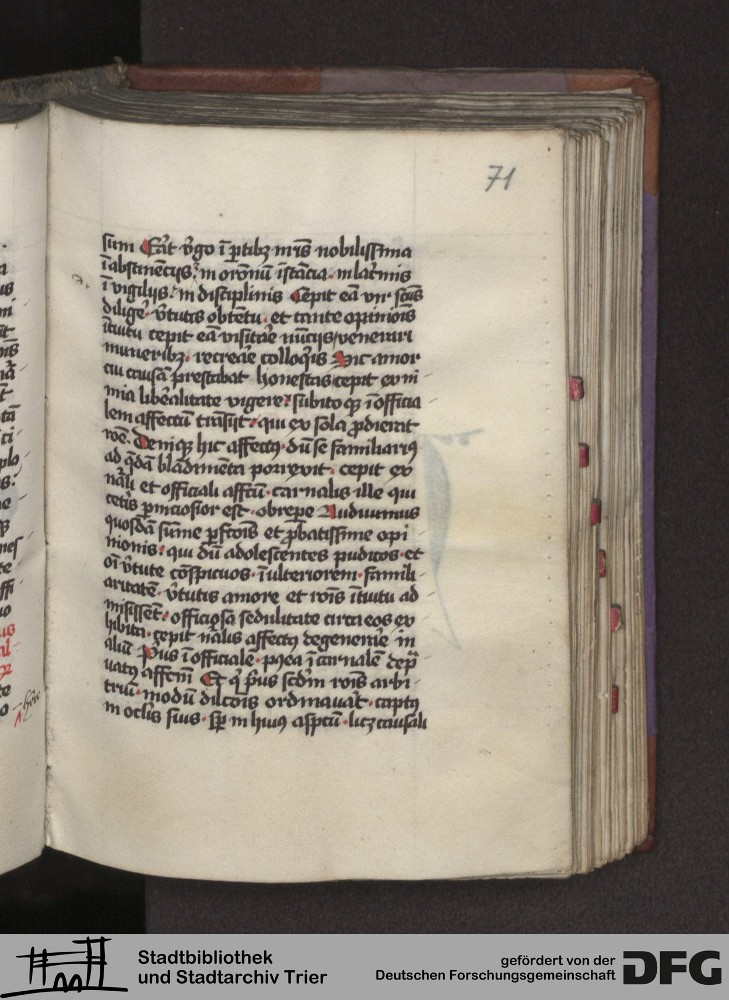 71
sum Erat v̾go ī ꝑtibꝫ nr̄is nobilissima
ī abstinēcijs: in or̄onū īstācia · in lac̄mis
ī vigilijs: in disciplinis Cepit eā vir sc̄us
dilige᷑ v̾tutis obtētu · et tante opinionis
ītuitu cepit eā visitare nūcijs venerari
muneribꝫ · recreare colloq̄is Hic amor
cui causā prestabat honestas cepit ex ni
mia lib̾alitate vigere: subitoqꝫ ī officia
lem affectū trāsijt: qui ex sola ꝓdierat
rōe · Deniqꝫ hic affectꝰ · dū se familiariꝰ
ad q̄dā blādimēta porrexit · cepit ex
nāli et officiali affc̄ū · carnalis ille qui
cet̾is ꝑniciosior est · obrepe᷑ Audiuimus
quosdā sūme ꝑfc̄ōis et ꝓbatissime opi
nionis: qui dū adolescentes pudicos · et
oī v̾tute cōspicuos · ī ulteriorem · famili
aritatē · v̾tutis amore et rōis ītuitu ad
misissēt · officiosa sedulitate circa eos ex
hibita · cepit nālis affectꝰ degenerare in
aliū P̾us ī officiale · postea ī carnalē dep̄
uatꝰ affem̄ Et q̄ p̾us scd̄m rōis arbi
triū · modū dilc̄ōis ordinauāt · captꝰ
in oclis suis · sꝑ in hiuꝰ aspc̄tū · licꝫ causali
Stadtbibliothek
und Stadtarchiv Trier
gefördert von der
Deutschen Forschungsgemeinschaft
DFG